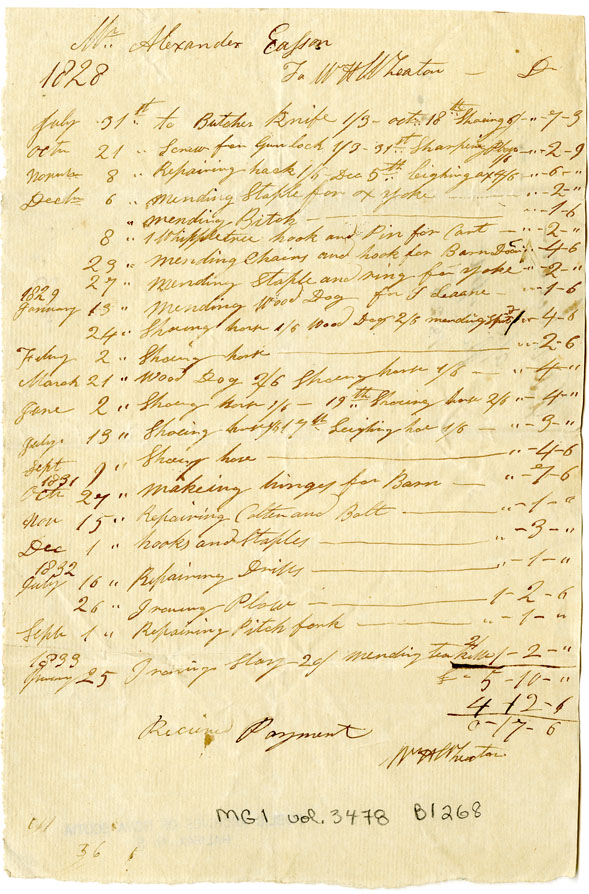 Mr Alexander Easson
1828 To W H Wheaton — Dr
July 31st to Butcher Knife 1/3 - octr 18th Shoeing 6/ " - 7 - 3
Octr 21 " Screw for Gunlock 1/3 - 31st Sharpening 1/6 " - 2 - 9
Novmr 8 " Repairing hask 1/6 Dec 5th Leighing ax 4/6 " - 6 - "
Decbr 6 " Mending Staple for ox yoke — " - 2 - "
" mending Bitch — " - 1 - 6
8 " 1 Whippletree hook and Pin for Cart - " - 2 - "
23 " Mending Chains and hook for Barn Door " - 4 - 6
27 " Mending Staple and ring for yoke - " - 2 - "
1829
January 13 " Mending Wood Dog for — " - 1 - 6
24 " Shoeing horse 1/6 Wood Dog 2/6 mending " - 4 - 6
Febuy 2 " Shoeing horse — " - 2 - 6
March 21 " Wood Dog 2/6 Shoeing horse 1/6 — " - 4 - "
June 2 " Shoeing horse 1/6 - 19th Shoeing horse 2/6 " - 4 - "
July 13 " Shoeing horse 1/6 17th Leighing hoe 1/6 - " - 3 - "
Sept 9 " Shoeing horse — " - 4 - 6
1831
Octr 27 " makeing hinges for Barn — " - 7 - 6
Nov 15 " Repairing and Bolt — " - 1 - "
Dec 1 " hooks and Staples — " - 3 - "
1832
July 16 " Repairing — " - 1 - "
26 " Ironing Plow — 1 - 2 - 6
Septr 1 " Repairing Pitch fork — " - 1 - "
1833
January 25 Ironing Slay - 20/ mending tea kittle 2/ 1 - 2 - "
£ - 5 - 10 - "
4 12 - 6
0 - 17 - 6
Recieved Payment
Wm H Wheaton
MG1 vol. 3478 B1268
36